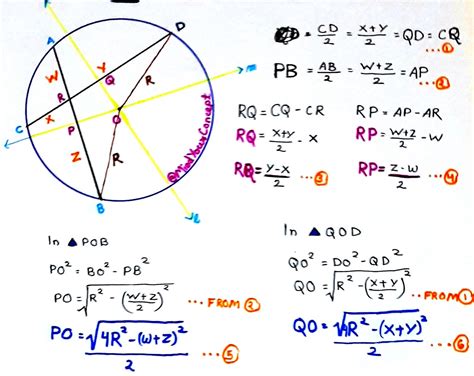 A
D
W
Y
Q
R
R
X
P
O
m
C
Z
R
B
n
@MindYourConcept
= CD/2 = x+y/2 = QD = CQ ... ①
PB = AB/2 = w+z/2 = AP ... ②
RQ = CQ - CR
RP = AP - AR
RQ = x+y/2 - x
RP = w+z/2 - w
RQ = y-x/2 ... ③
RP = z-w/2 ... ④
In ▲ POB
PO² = BO² - PB²
PO = √R² - (w+z/2)² ... FROM ②
PO = √4R² - (w+z)²/2 ... ⑤
In ▲ QOD
QO² = DO² - QD²
QO = √R² - (x+y/2)² ... FROM ①
QO = √4R² - (x+y)²/2 ... ⑥